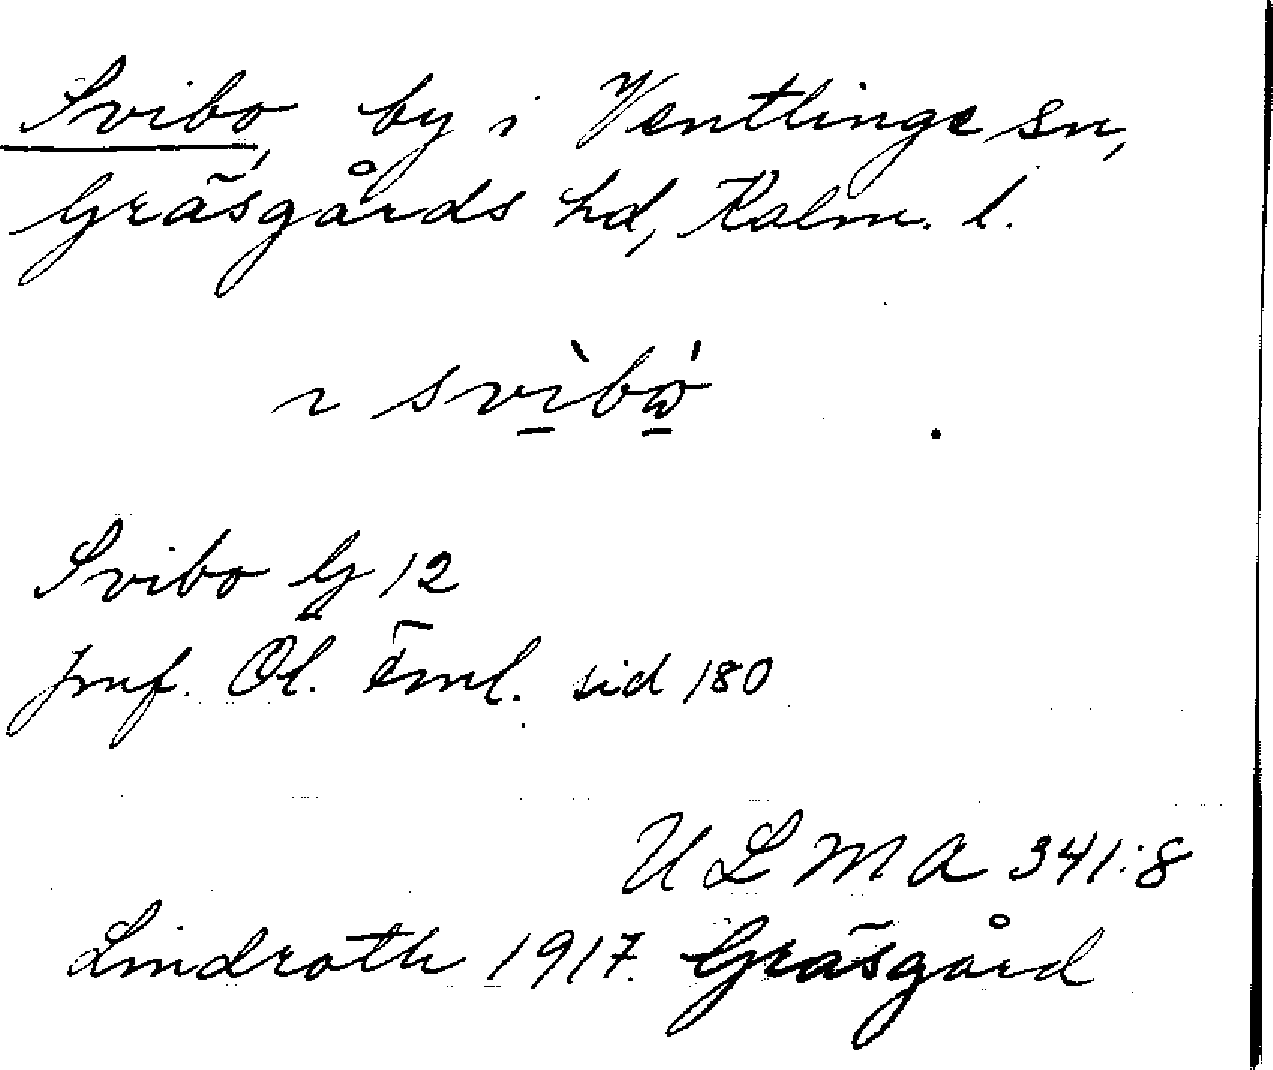 Svibo, by i Ventlinge sn,
Gräsgårds hd, Kalm. l.
svìbó
Svibo G 12
jmf. Öl. sid 180
ULMA 341:8
Lindroth 1917. Gräsgård